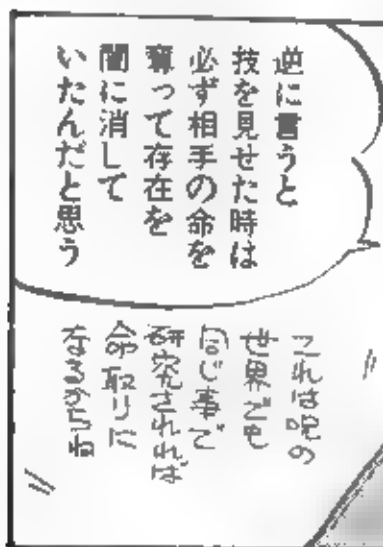 逆に言うと
技を見せた時は
必ず相手の命を
奪って存在を
闇に消して
いたんだと思う
これは呪の
世界でも
同じ事で
研究されれば
命取りに
なるからね